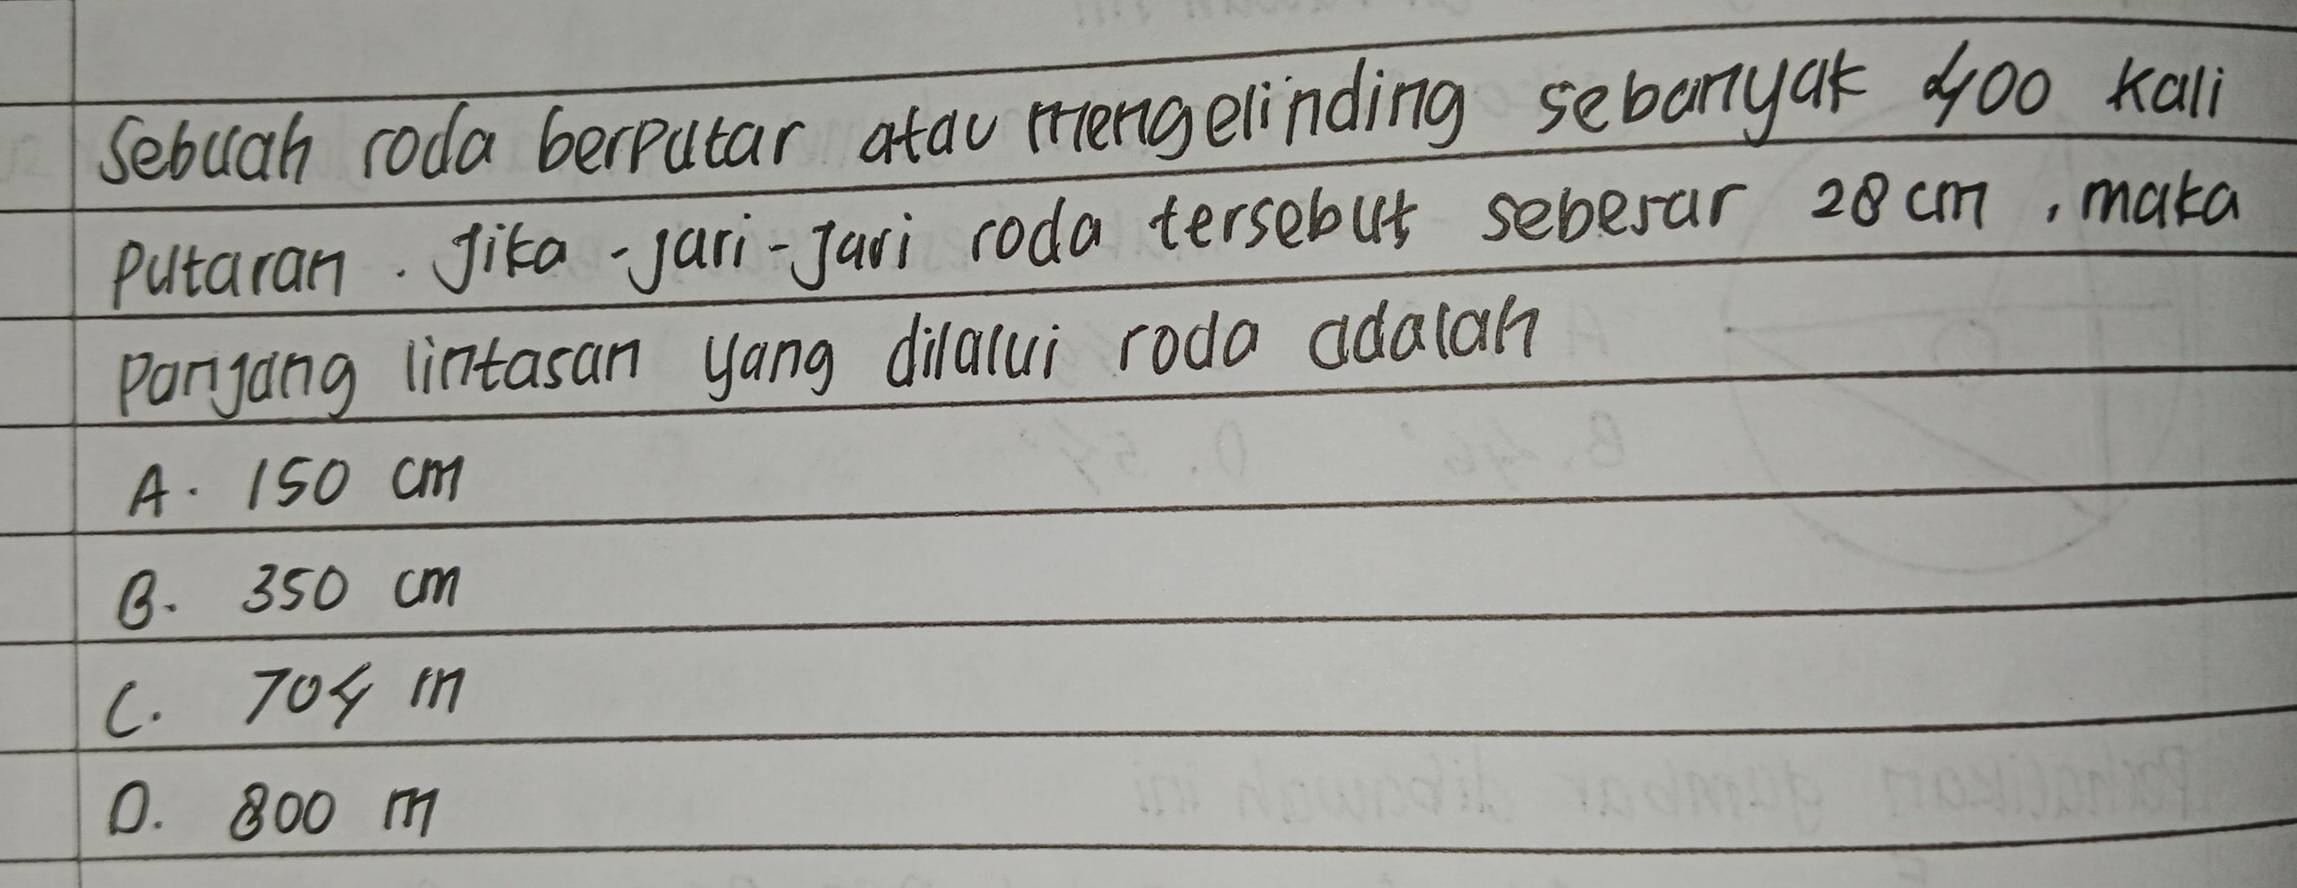 Sebuah roda berputar atau mengelinding sebanyak 400 kali
putaran. Jika -jari-jari roda tersebut sebesar 28 cm, maka
panjang lintasan yang dilalui roda adalah
A. 150 cm
B. 350 cm
C. 704 m
D. 800 m